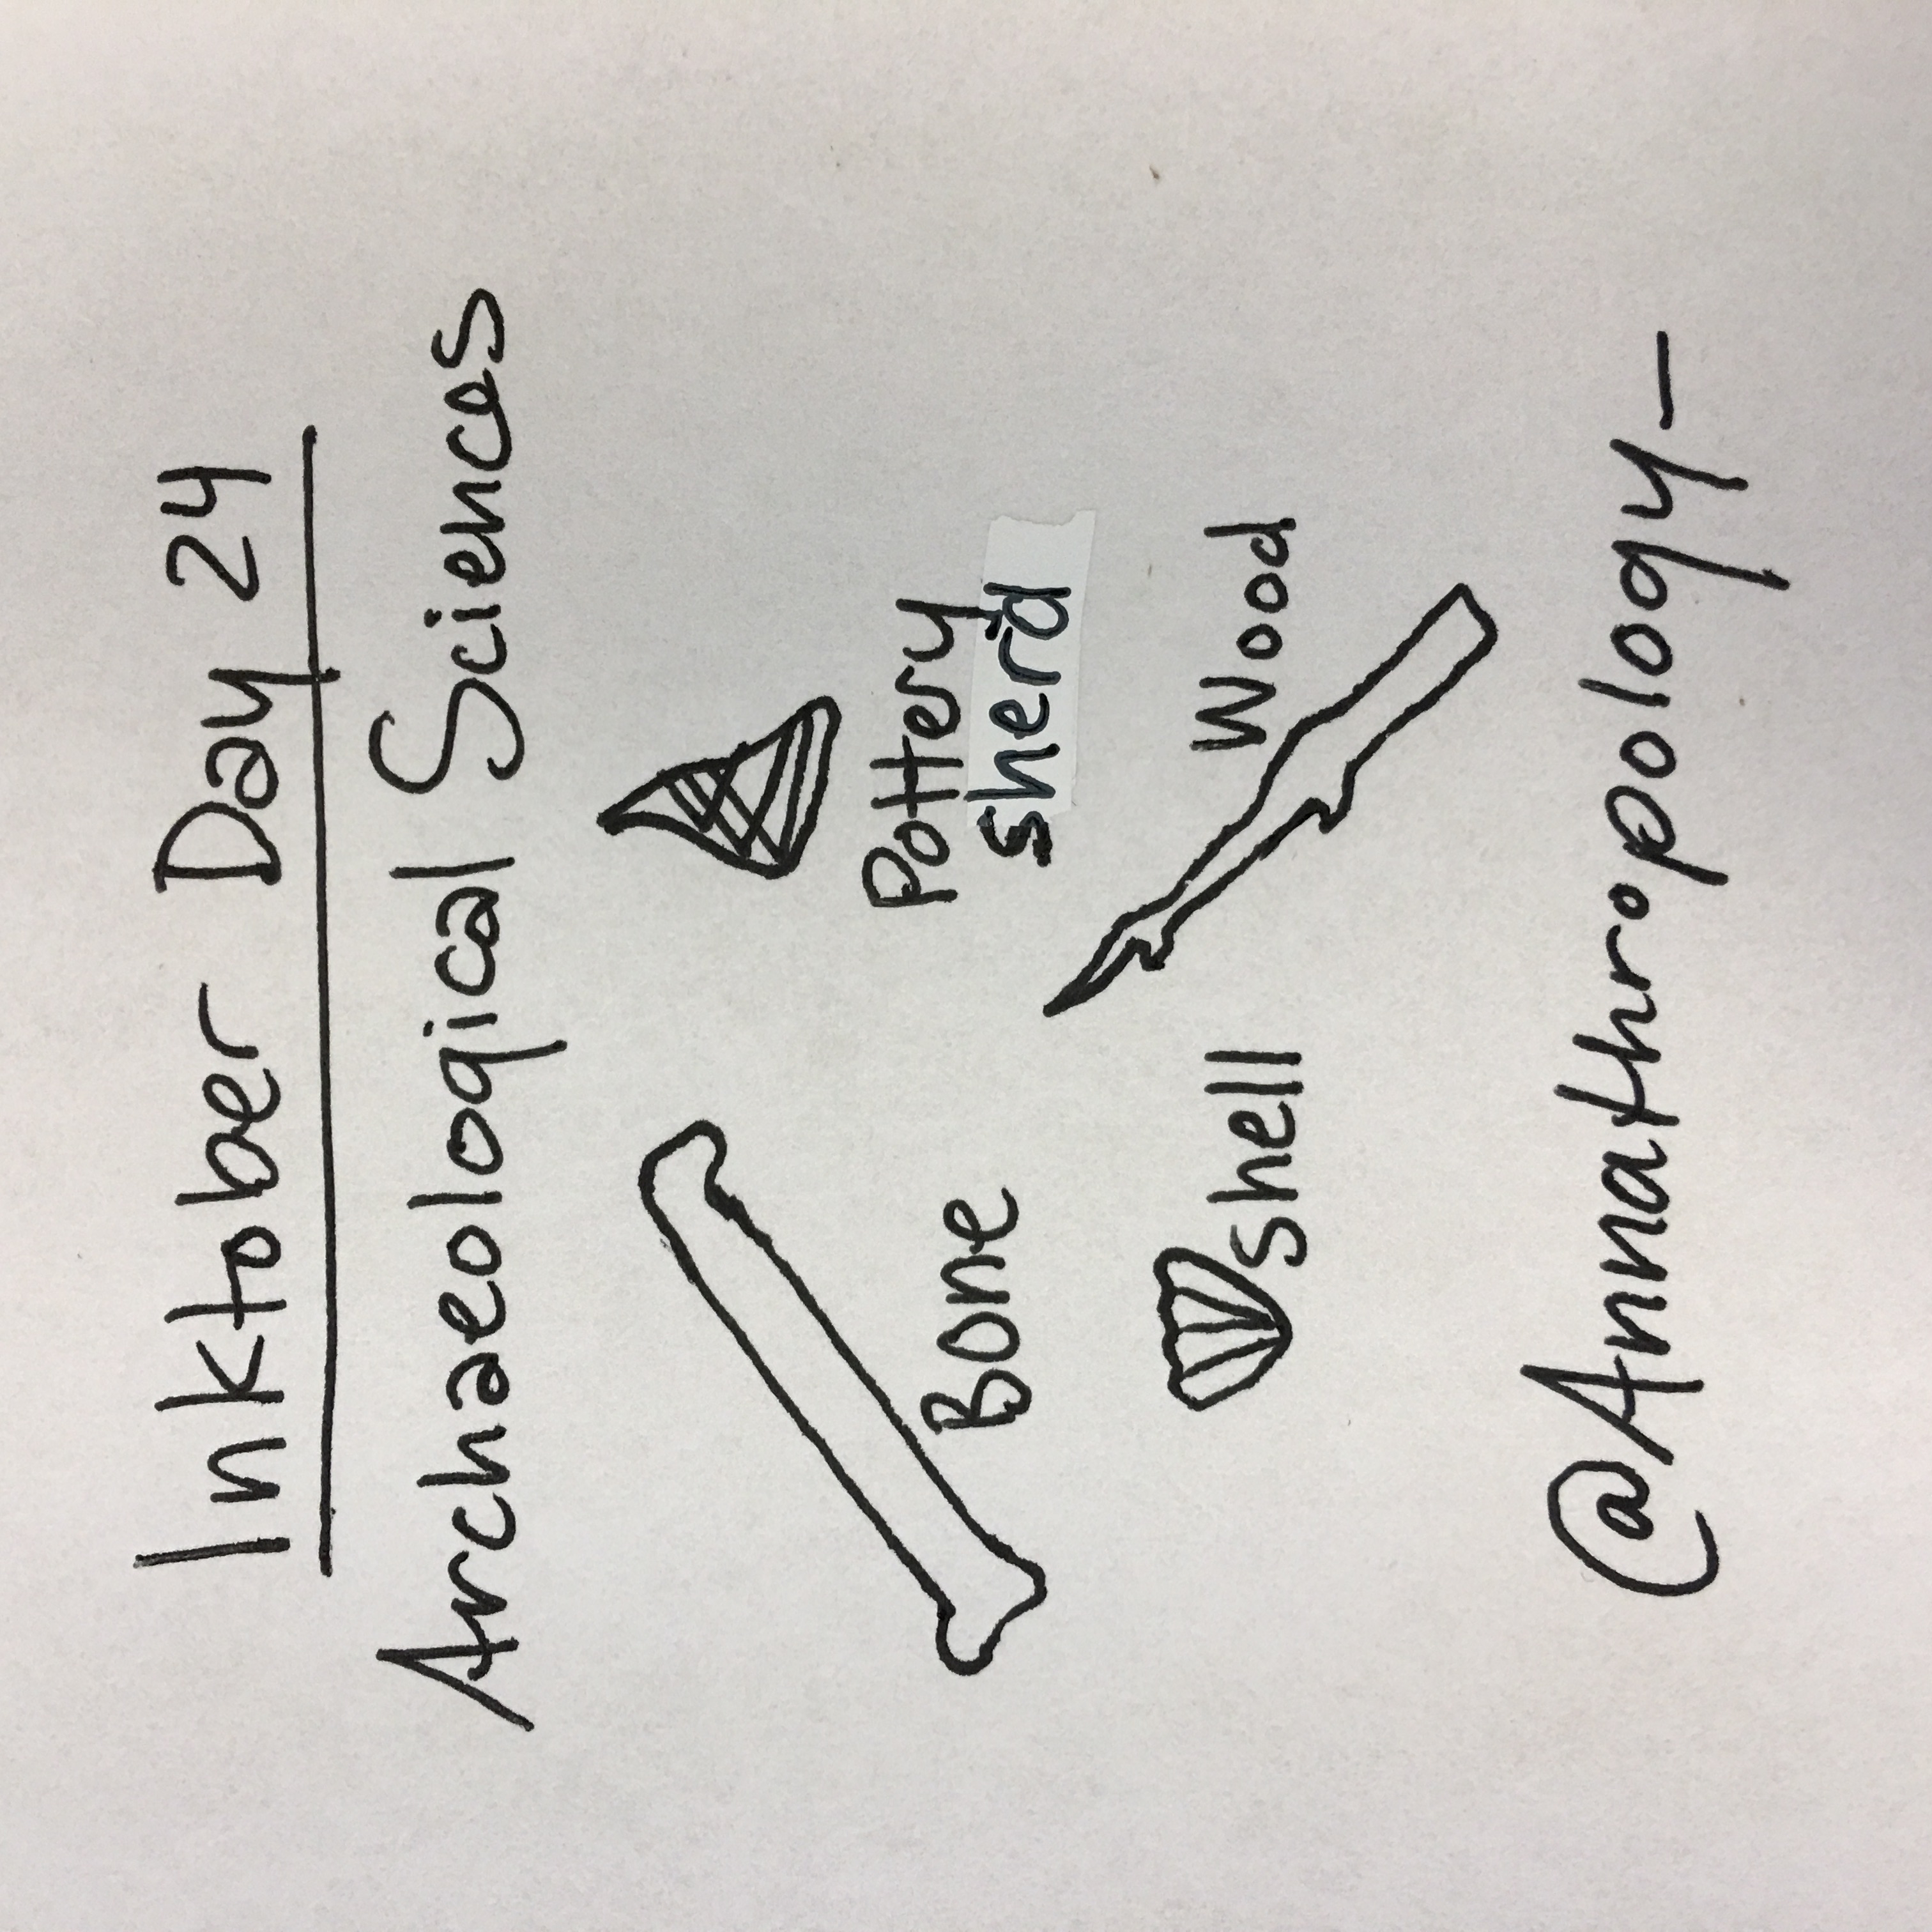 Inktober Day 24
Archaeological Sciences
Bone
Pottery
sherd
shell
Wood
@Annathropology_